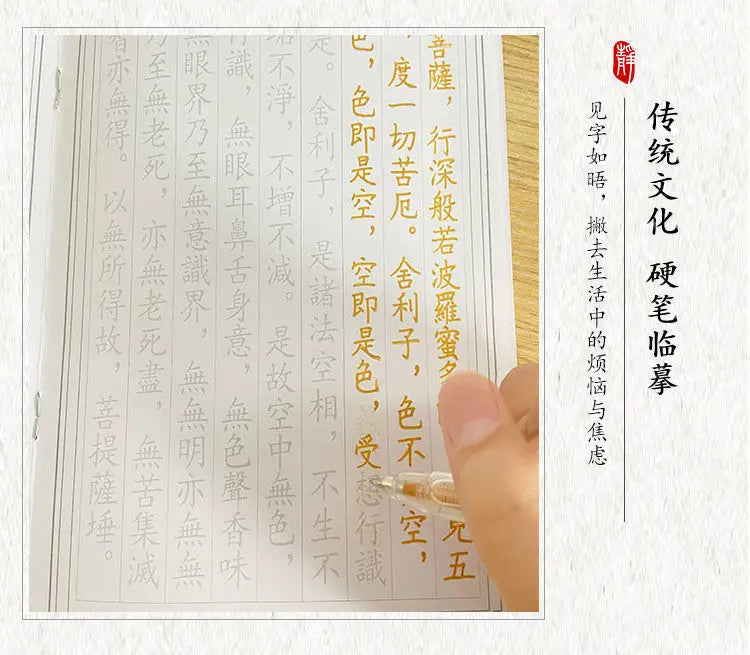 传统文化 硬笔临摹
靜
见字如晤，撇去生活中的烦恼与焦虑
菩薩，行深般若波羅蜜 見五
，度一切苦厄。舍利子，色不 空，
色，色即是空，空即是色，受想行識
是。舍利子，是諸法空相，不生不
垢不淨，不增不減。是故空中無色，
行識，無眼耳鼻舌身意，無色聲香味
無眼界乃至無意識界，無無明亦無無
乃至無老死，亦無老死盡，無苦集滅
智亦無得。以無所得故，菩提薩埵。